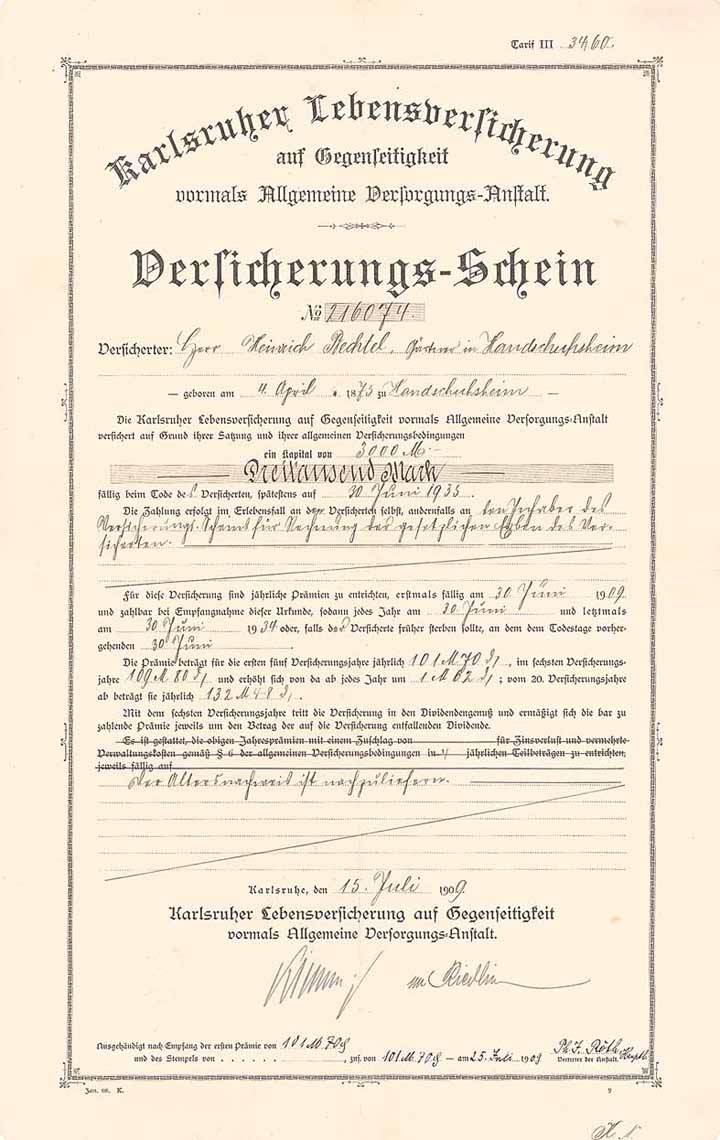 Tarif III 34/60.
Karlsruher Lebensversicherung
auf Gegenseitigkeit
vormals Allgemeine Versorgungs-Anstalt.
Versicherungs-Schein
No 216074.
Versicherter: Herr Heinrich Bechtel, Gärtner in Handschuhsheim
— geboren am 4. April 1875 zu Handschuhsheim —
Die Karlsruher Lebensversicherung auf Gegenseitigkeit vormals Allgemeine Versorgungs-Anstalt
versichert auf Grund ihrer Satzung und ihrer allgemeinen Versicherungsbedingungen
ein Kapital von 3000 M.—
Dreitausend Mark
fällig beim Tode des Versicherten, spätestens auf 30 Juni 1935
Die Zahlung erfolgt im Erlebensfall an den Versicherten selbst, andernfalls an den Inhaber des
Versicherungs-Scheins für Rechnung der gesetzlichen Erben des Ver-
sicherten.
Für diese Versicherung sind jährliche Prämien zu entrichten, erstmals fällig am 30 Juni 1909
und zahlbar bei Empfangnahme dieser Urkunde, sodann jedes Jahr am 30 Juni und letztmals
am 30 Juni 1934 oder, falls der Versicherte früher sterben sollte, an dem dem Todestage vorher-
gehenden 30 Juni
Die Prämie beträgt für die ersten fünf Versicherungsjahre jährlich 101 M 70 ₰, im sechsten Versicherungs-
jahre 109 M 80 ₰ und erhöht sich von da ab jedes Jahr um 1 M 62 ₰; vom 20. Versicherungsjahre
ab beträgt sie jährlich 132 M 48 ₰.
Mit dem sechsten Versicherungsjahre tritt die Versicherung in den Dividendengenuß und ermäßigt sich die bar zu
zahlende Prämie jeweils um den Betrag der auf die Versicherung entfallenden Dividende.
Es ist gestattet, die obigen Jahresprämien mit einem Zuschlag von für Zinsverlust und vermehrte
Verwaltungskosten gemäß § 6 der allgemeinen Versicherungsbedingungen in 4 jährlichen Teilbeträgen zu entrichten,
jeweils fällig auf
Der Altersnachweis ist nachzuliefern.
Karlsruhe, den 15. Juli 1909.
Karlsruher Lebensversicherung auf Gegenseitigkeit
vormals Allgemeine Versorgungs-Anstalt.
Riedlin
Ausgehändigt nach Empfang der ersten Prämie von 101 M 70 ₰
und des Stempels von . . . . . . . , zus. von 101 M 70 ₰ — am 25. Juli 1909
Ph. J. Röth,
Vertreter der Anstalt.
Jan. 08. K. 9